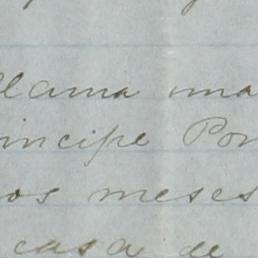 llama una
incipe Por
os meses
casa de